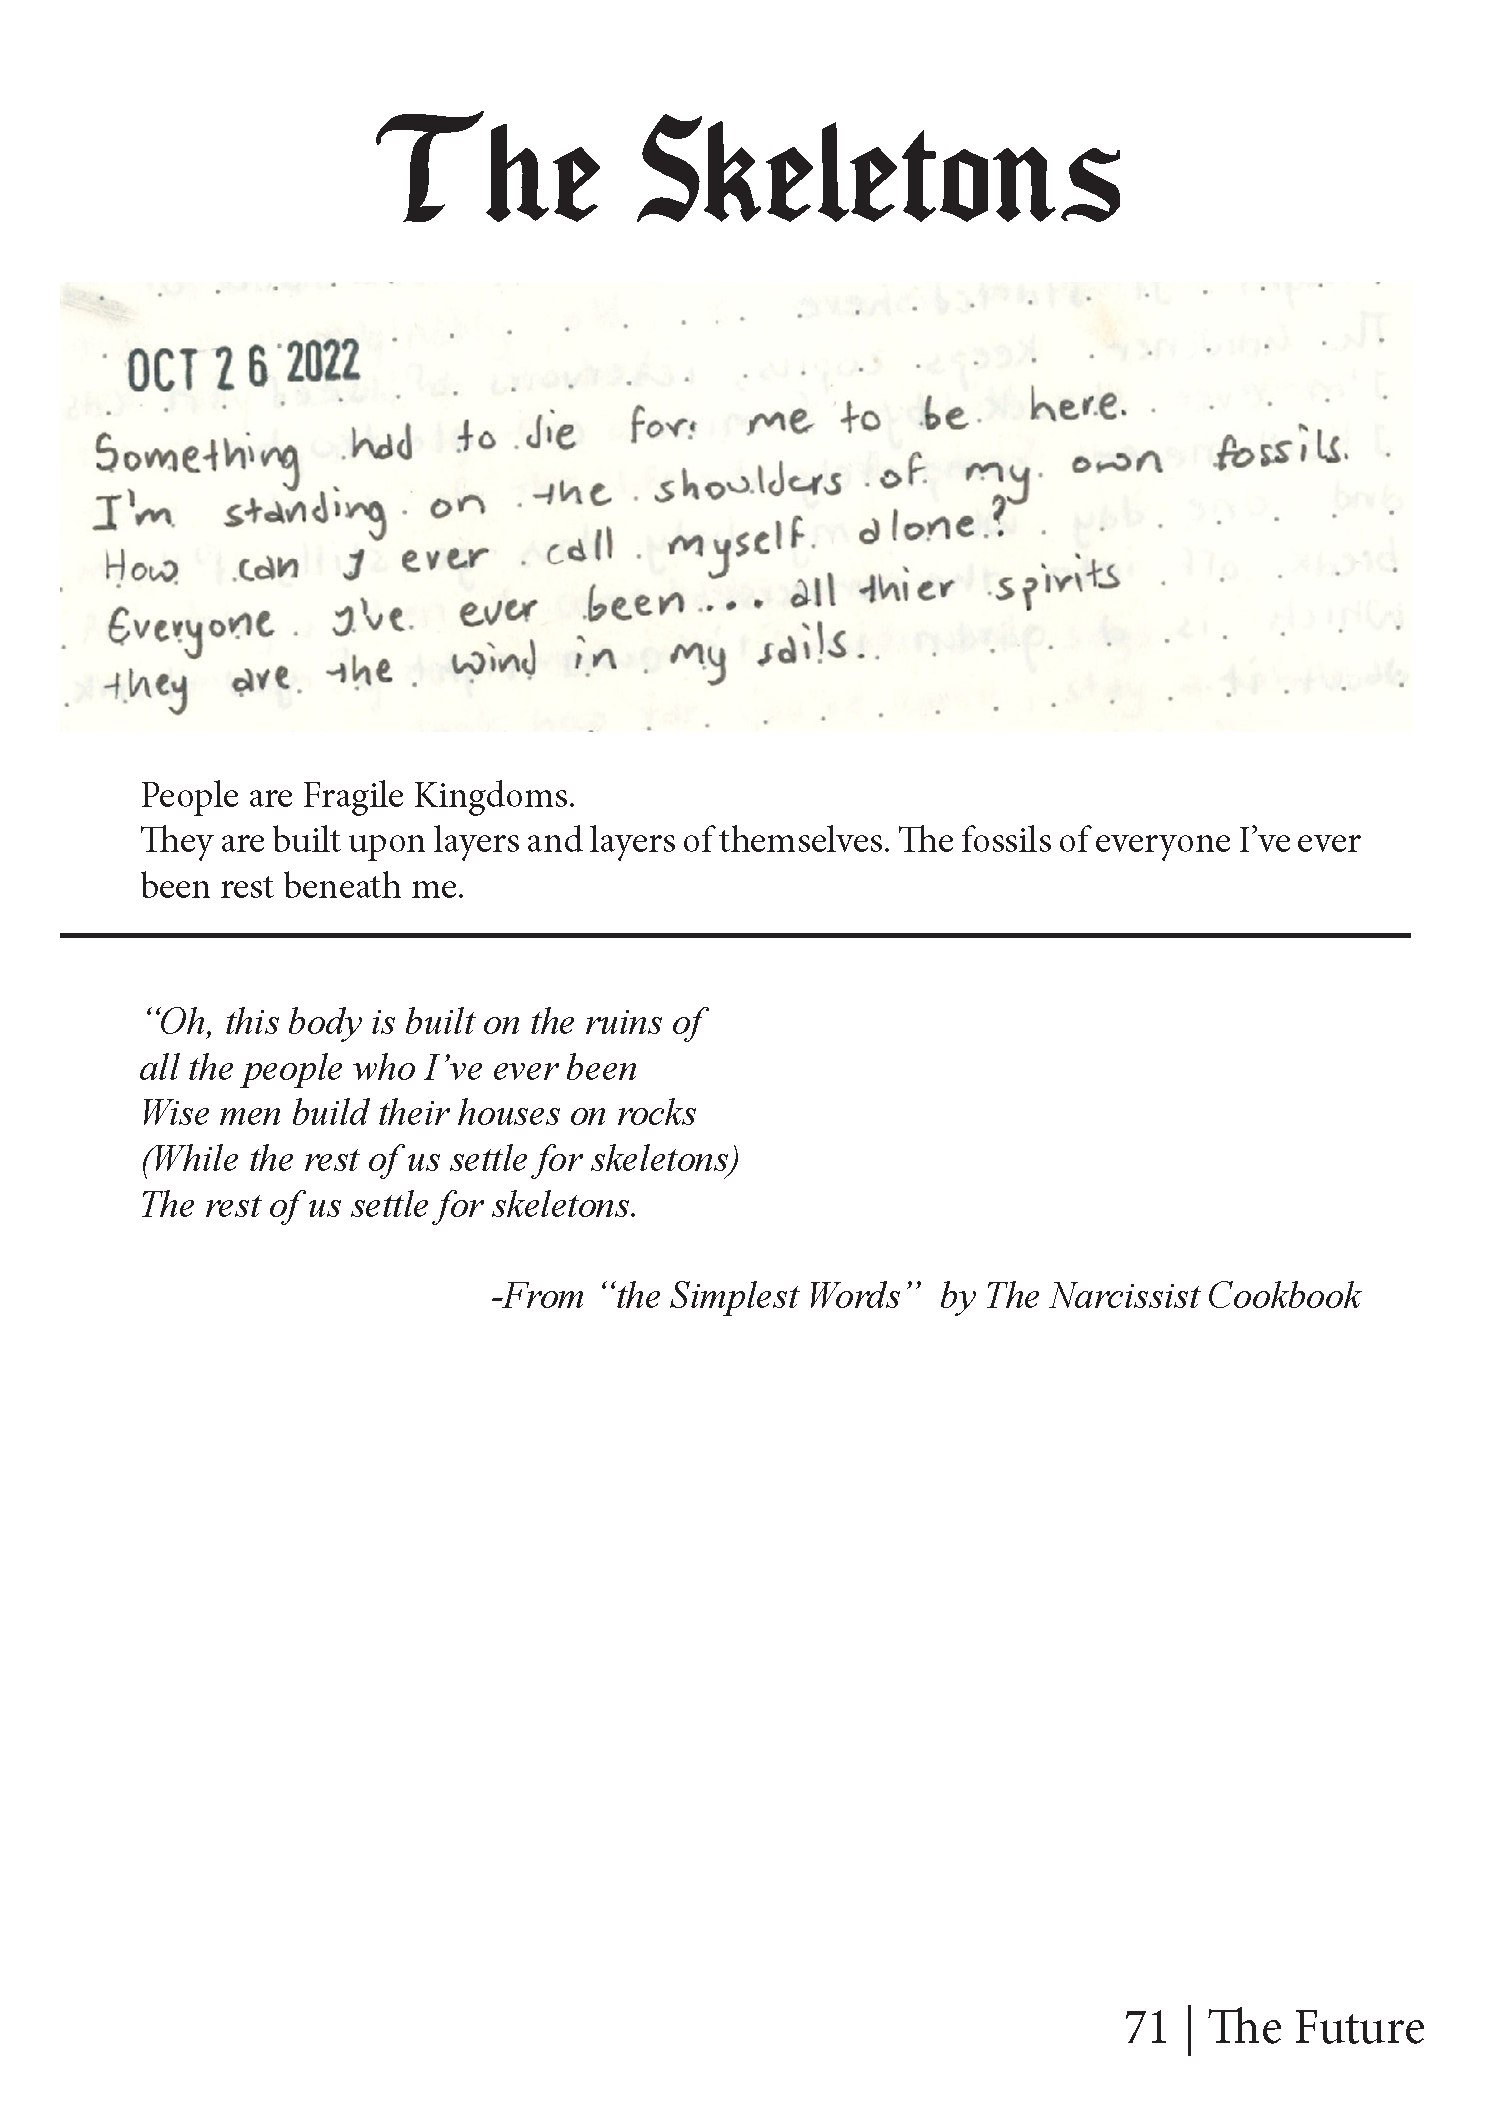 The Skeletons
OCT 26 2022
Something had to die for me to be here.
I'm standing on the shoulders of my own fossils.
How can I ever call myself alone?
Everyone I've ever been... all thier spirits
they are the wind in my sails.
People are Fragile Kingdoms.
They are built upon layers and layers of themselves. The fossils of everyone I’ve ever
been rest beneath me.
“Oh, this body is built on the ruins of
all the people who I’ve ever been
Wise men build their houses on rocks
(While the rest of us settle for skeletons)
The rest of us settle for skeletons.
-From “the Simplest Words” by The Narcissist Cookbook
71 | The Future